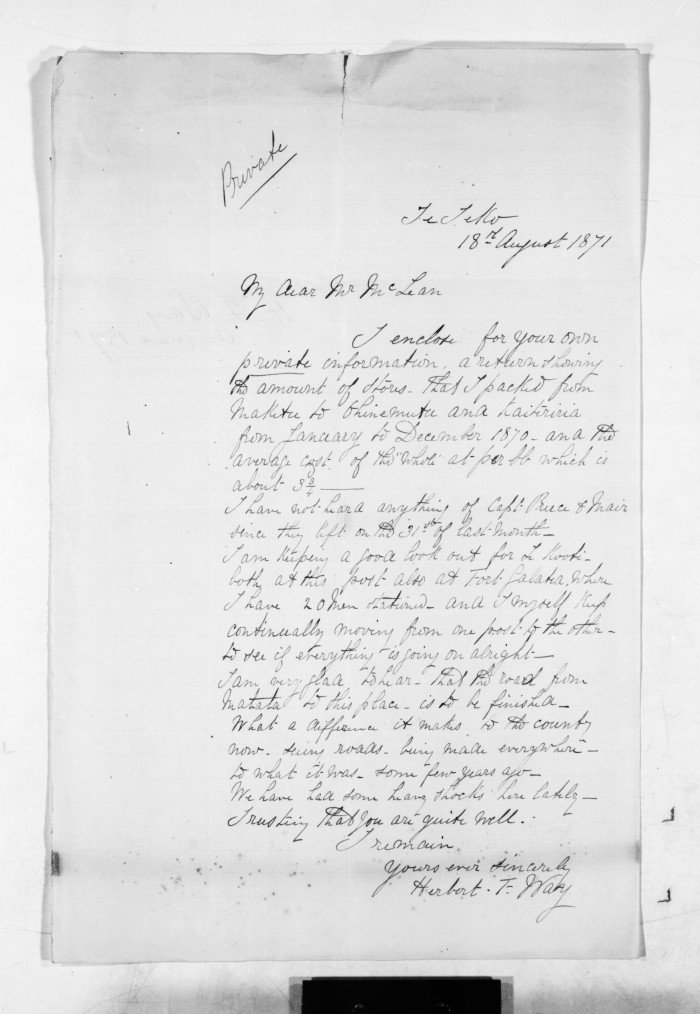 Private
Te Teko
18th August 1871
My dear Mr McLean
I enclose for your own
private information, a return showing
the amount of stores - that I packed from
Maketu to Ohinemutu and Kaitiriria
from January to December 1870 - and the
average cost of the "whole" at per lb which is
about 3 3/4 —
I have not heard anything of Capt Preece & Mair
since they left on the 31st of last month -
I am keeping a good look out for Te Kooti -
both at this post also at Fort Galatea, where
I have 20 men stationed - and I myself keep
continually moving from one post to the other -
to see if everything is going on alright -
I am very glad to hear - that the road from
Matata to this place - is to be finished -
What a difference it makes to the country
now - seing roads - being made everywhere -
to what it was - some few years ago -
We have had some heavy shocks here lately -
Trusting that you are quite well.
I remain.
Yours ever sincerely
Herbert. F. Way